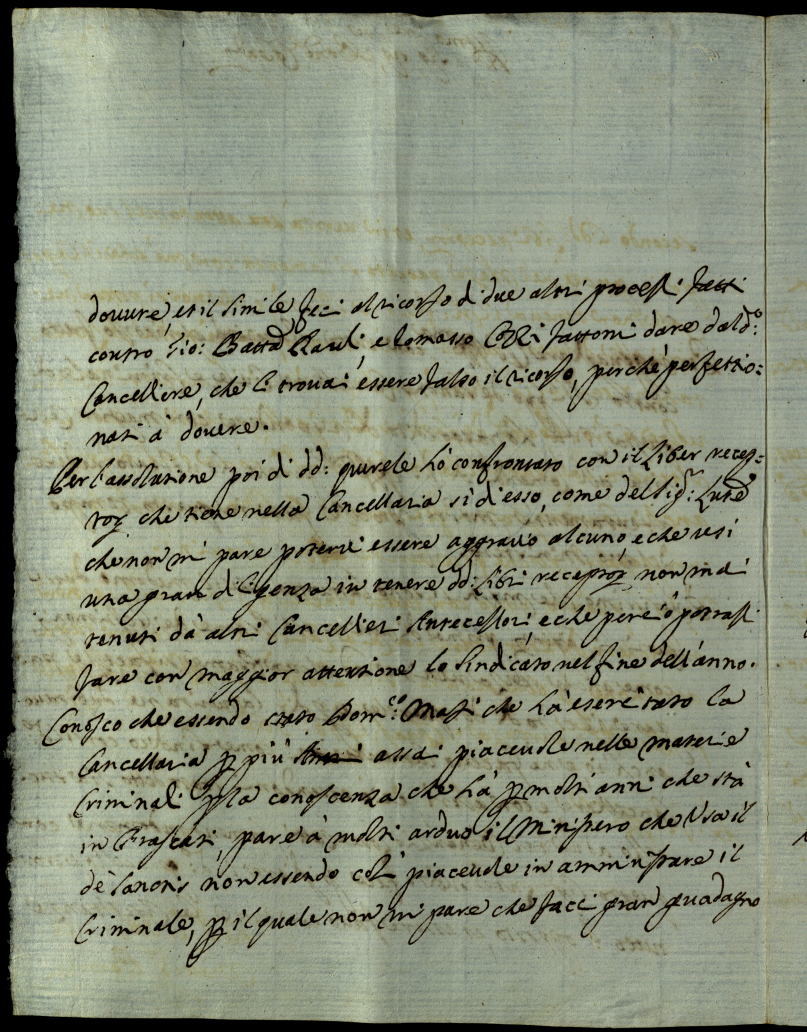 dovure, et il simile feci al ricorso di due altri processi fatti
contro Gio: Battā Pauli, e Tomasso Cozzi fattomi dare dal dº:
Cancelliere, che li trovai essere falso il ricorso, perche perfettio=
nati à dovere.
Per l'assolutione poi di dd: querele hò confrontato con il Liber recep=
tor che tiene nella Cancellaria sì di esso, come del Sigr:
che non mi pare potervi essere aggravio alcuno, e che usi
una gran diligenza in tenere dd: libri receptor, non mai
tenuti dà altri Cancellieri Antecessori, e che perciò potrassi
fare con maggior attentione lo Sindicato nel fine dell'anno.
Conosco che essendo stato Domco: Masi che hà esercitato la
Cancellaria p più assai piacevole nelle materie
Criminali p la conoscenza che hà p molti anni che stà
in Frascati, pare à molti arduo il Ministero che usa il
de Sanctis non essendo così piacevole in amministrare il
Criminale, p il quale non mi pare che facci gran guadagno